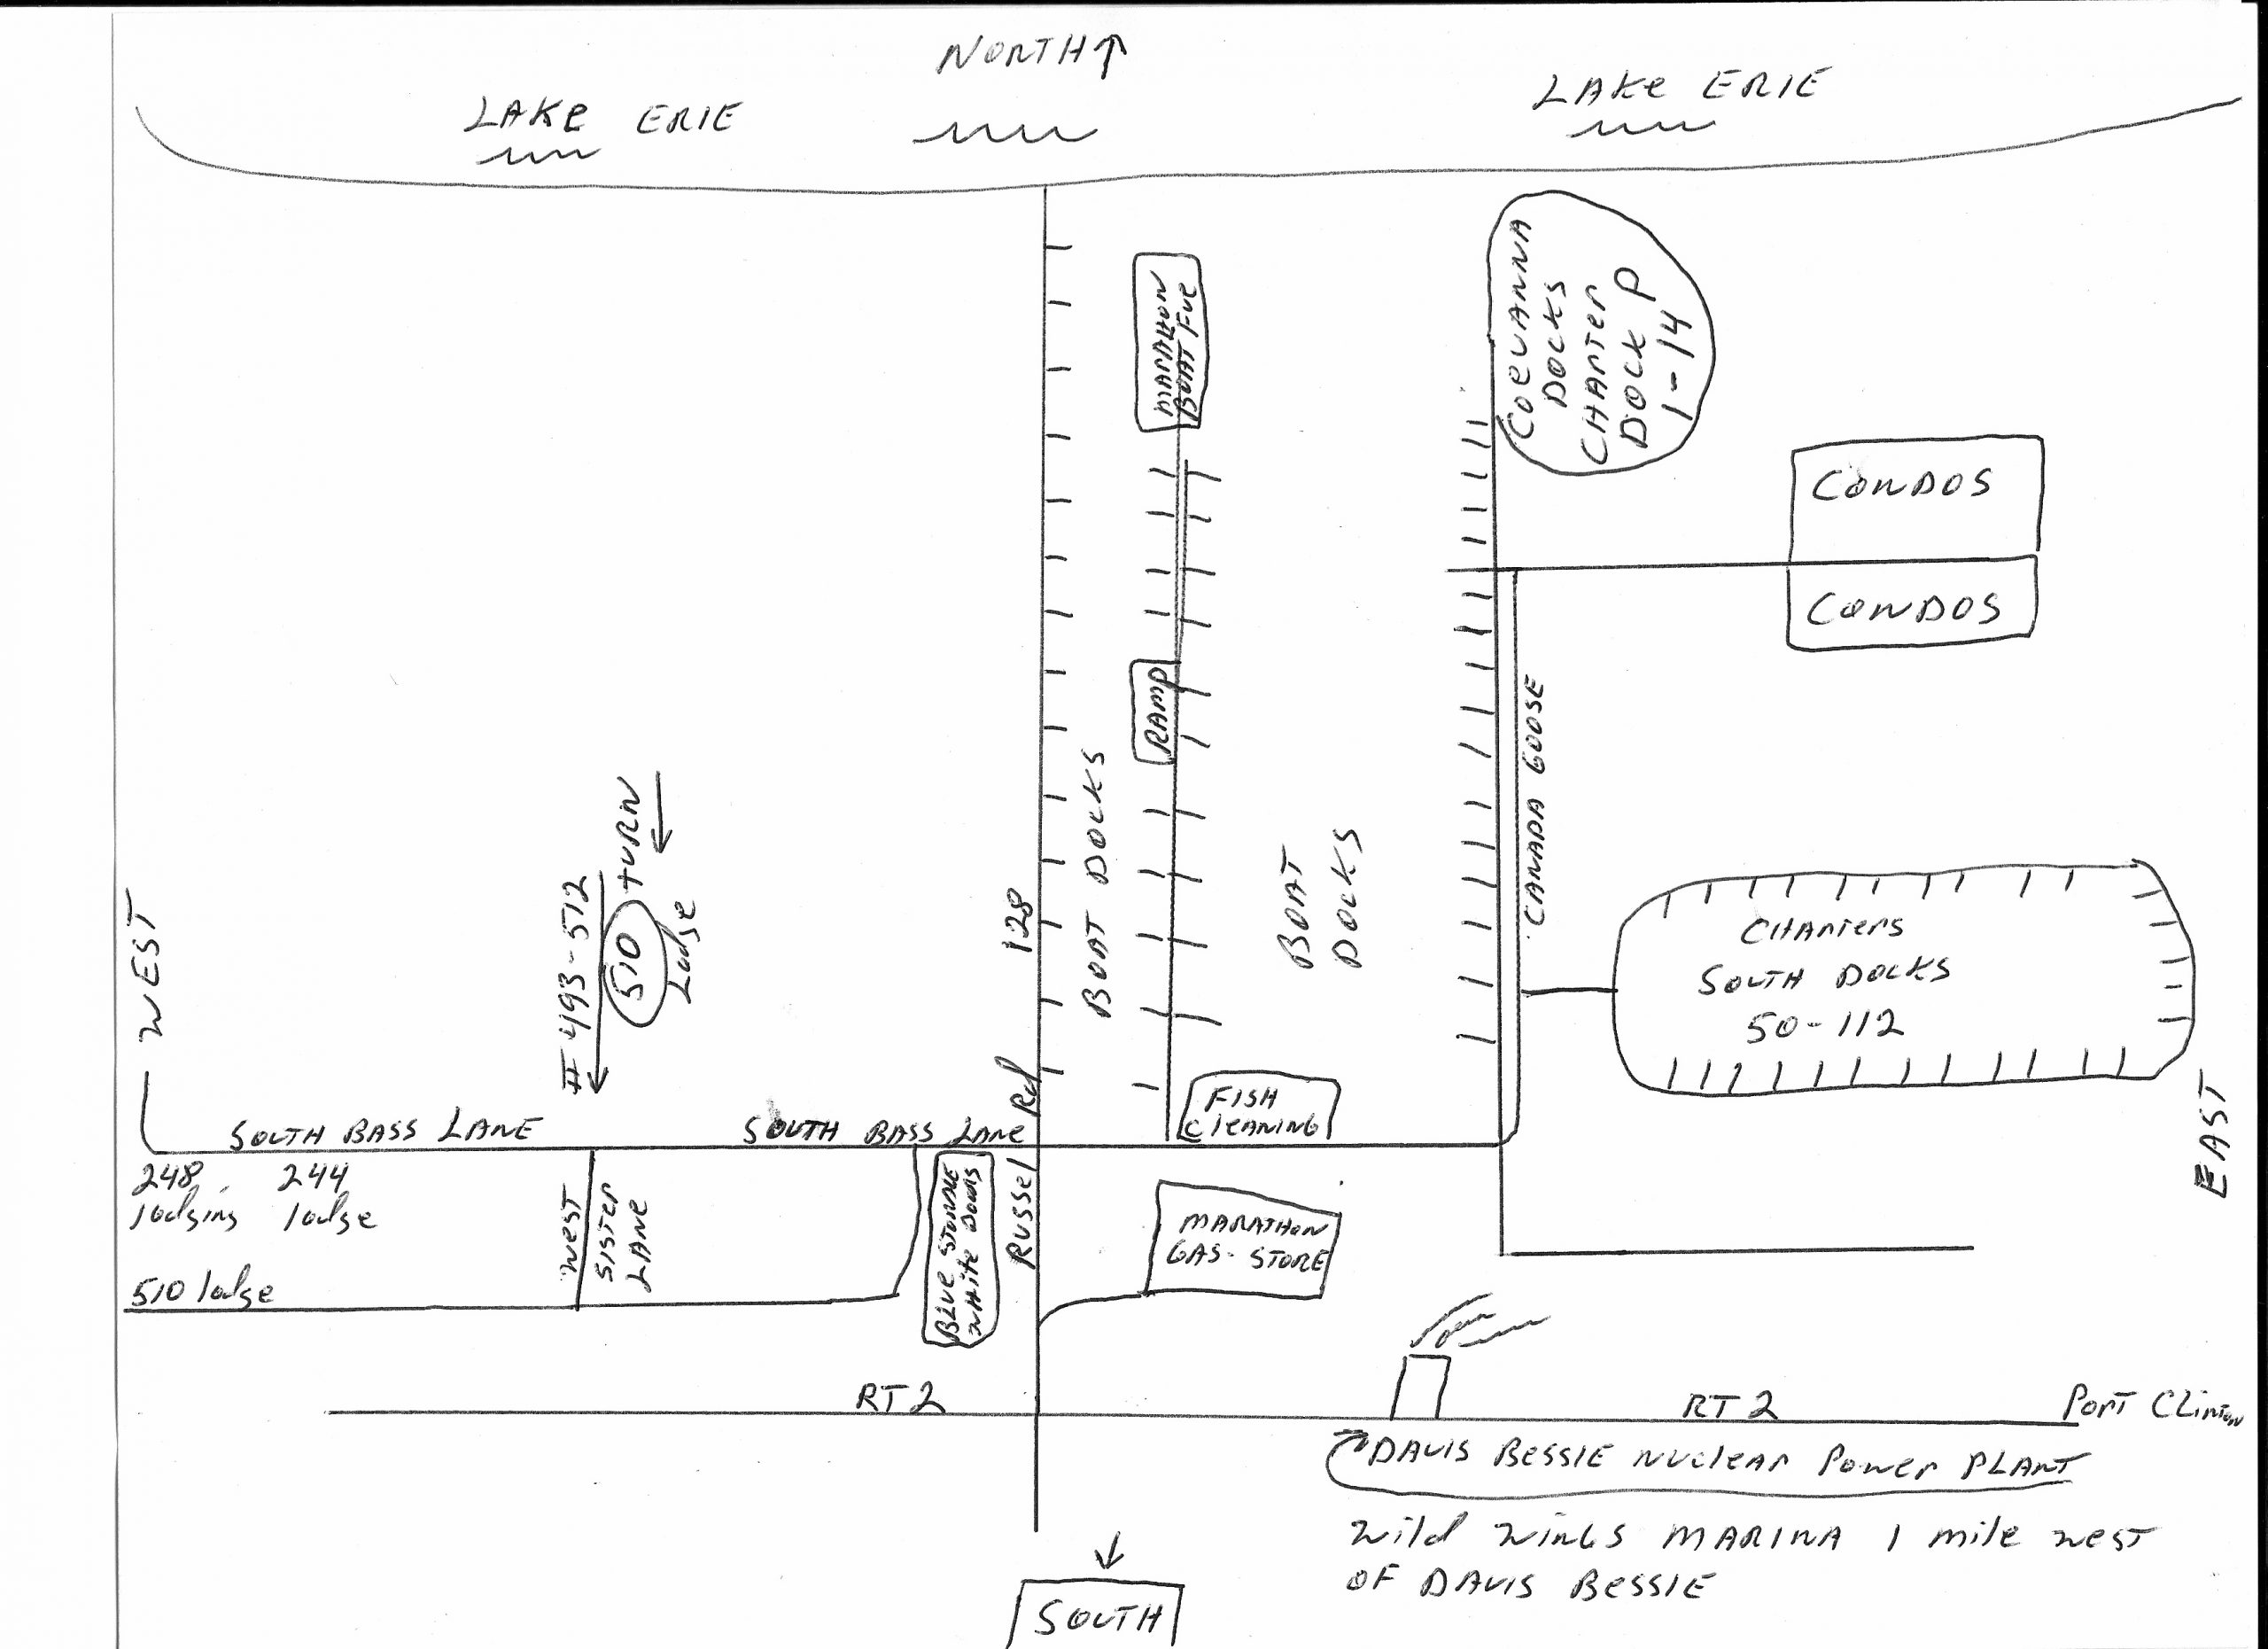 NORTH ↑
LAKE ERIE
LAKE ERIE
MARATHON
BOAT FUE
COEVANNA
DOCKS
CHARTER
DOCK P
1-14
CONDOS
CONDOS
RAMP
CANADA GOOSE
BOAT DOCKS
BOAT
DOCKS
128
WEST
# 493-512
510 TURN
Lodge
CHARTERS
SOUTH DOCKS
50-112
EAST
FISH
CLEANING
SOUTH BASS LANE
SOUTH BASS LANE
Russel Rd
248
lodging
244
lodge
510 lodge
WEST
SISTER
LANE
BLUE STORAGE
WHITE DOORS
MARATHON
GAS-STORE
RT 2
RT 2
PORT CLINTON
DAVIS BESSIE NUCLEAR POWER PLANT
Wild WINGS MARINA 1 mile west
OF DAVIS BESSIE
SOUTH